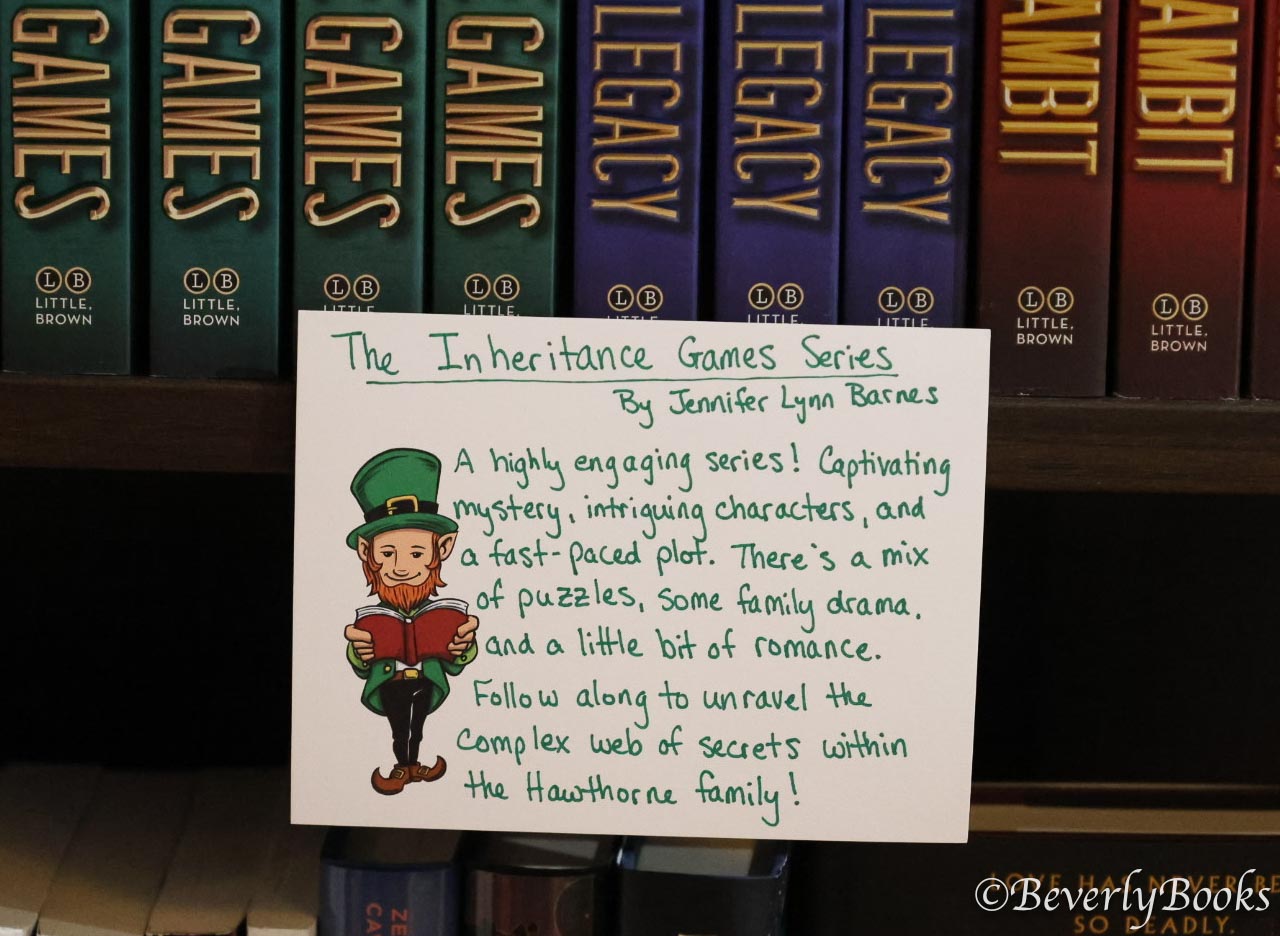 GAMES
GAMES
GAMES
GAMES
LEGACY
LEGACY
LEGACY
AMBIT
AMBIT
LB
LITTLE,
BROWN
LB
LITTLE,
BROWN
LB
LITTLE,
LB
LITTLE,
LB
LITTLE,
LB
LITTLE,
LB
LITTLE,
LB
LITTLE,
BROWN
LB
LITTLE,
BROWN
The Inheritance Games Series
By Jennifer Lynn Barnes
A highly engaging series! Captivating
mystery, intriguing characters, and
a fast-paced plot. There's a mix
of puzzles, some family drama,
and a little bit of romance.
Follow along to unravel the
complex web of secrets within
the Hawthorne family!
ZE
CA
LOVE HAS NEVER BE
SO DEADLY.
©BeverlyBooks